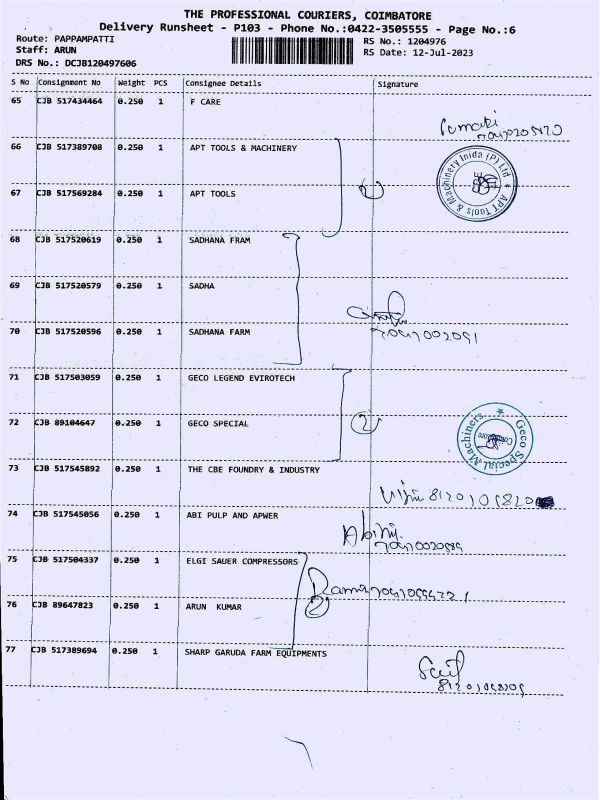 THE PROFESSIONAL COURIERS, COIMBATORE
Delivery Runsheet - P103 - Phone No.:0422-3505555 - Page No.:6
Route: PAPPAMPATTI RS No.: 1204976
Staff: ARUN RS Date: 12-Jul-2023
DRS No.: DCJB120497606
S No Consignment No Weight PCS Consignee Details Signature
65 CJB 517434464 0.250 1 F CARE
66 CJB 517389708 0.250 1 APT TOOLS & MACHINERY
APT Tools & Machinery Inida (P) Ltd
67 CJB 517569284 0.250 1 APT TOOLS
68 CJB 517520619 0.250 1 SADHANA FRAM
69 CJB 517520579 0.250 1 SADHA
70 CJB 517520596 0.250 1 SADHANA FARM
71 CJB 517503059 0.250 1 GECO LEGEND EVIROTECH
72 CJB 89104647 0.250 1 GECO SPECIAL 2
Geco Special Machines
73 CJB 517545892 0.250 1 THE CBE FOUNDRY & INDUSTRY
74 CJB 517545056 0.250 1 ABI PULP AND APWER
75 CJB 517504337 0.250 1 ELGI SAUER COMPRESSORS
76 CJB 89647823 0.250 1 ARUN KUMAR 2
77 CJB 517389694 0.250 1 SHARP GARUDA FARM EQUIPMENTS